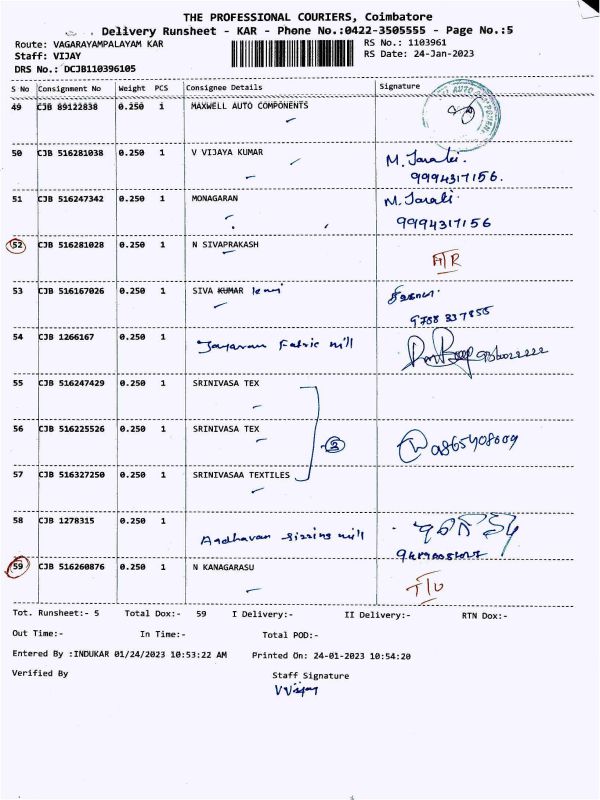 THE PROFESSIONAL COURIERS, Coimbatore
Delivery Runsheet - KAR - Phone No.:0422-3505555 - Page No.:5
Route: VAGARAYAMPALAYAM KAR RS No.: 1103961
Staff: VIJAY RS Date: 24-Jan-2023
DRS No.: DCJB110396105
S No Consignment No Weight PCS Consignee Details Signature
49 CJB 89122838 0.250 1 MAXWELL AUTO COMPONENTS
50 CJB 516281038 0.250 1 V VIJAYA KUMAR
9994317156.
51 CJB 516247342 0.250 1 MONAGARAN
9994317156
52 CJB 516281028 0.250 1 N SIVAPRAKASH
53 CJB 516167026 0.250 1 SIVA KUMAR
54 CJB 1266167 0.250 1 Jayaram Fabric mill
55 CJB 516247429 0.250 1 SRINIVASA TEX
56 CJB 516225526 0.250 1 SRINIVASA TEX
57 CJB 516327250 0.250 1 SRINIVASAA TEXTILES
58 CJB 1278315 0.250 1 Aadhavan sizzing mill
59 CJB 516260876 0.250 1 N KANAGARASU
Tot. Runsheet:- 5 Total Dox:- 59 I Delivery:- II Delivery:- RTN Dox:-
Out Time:- In Time:- Total POD:-
Entered By :INDUKAR 01/24/2023 10:53:22 AM Printed On: 24-01-2023 10:54:20
Verified By Staff Signature
VVijay